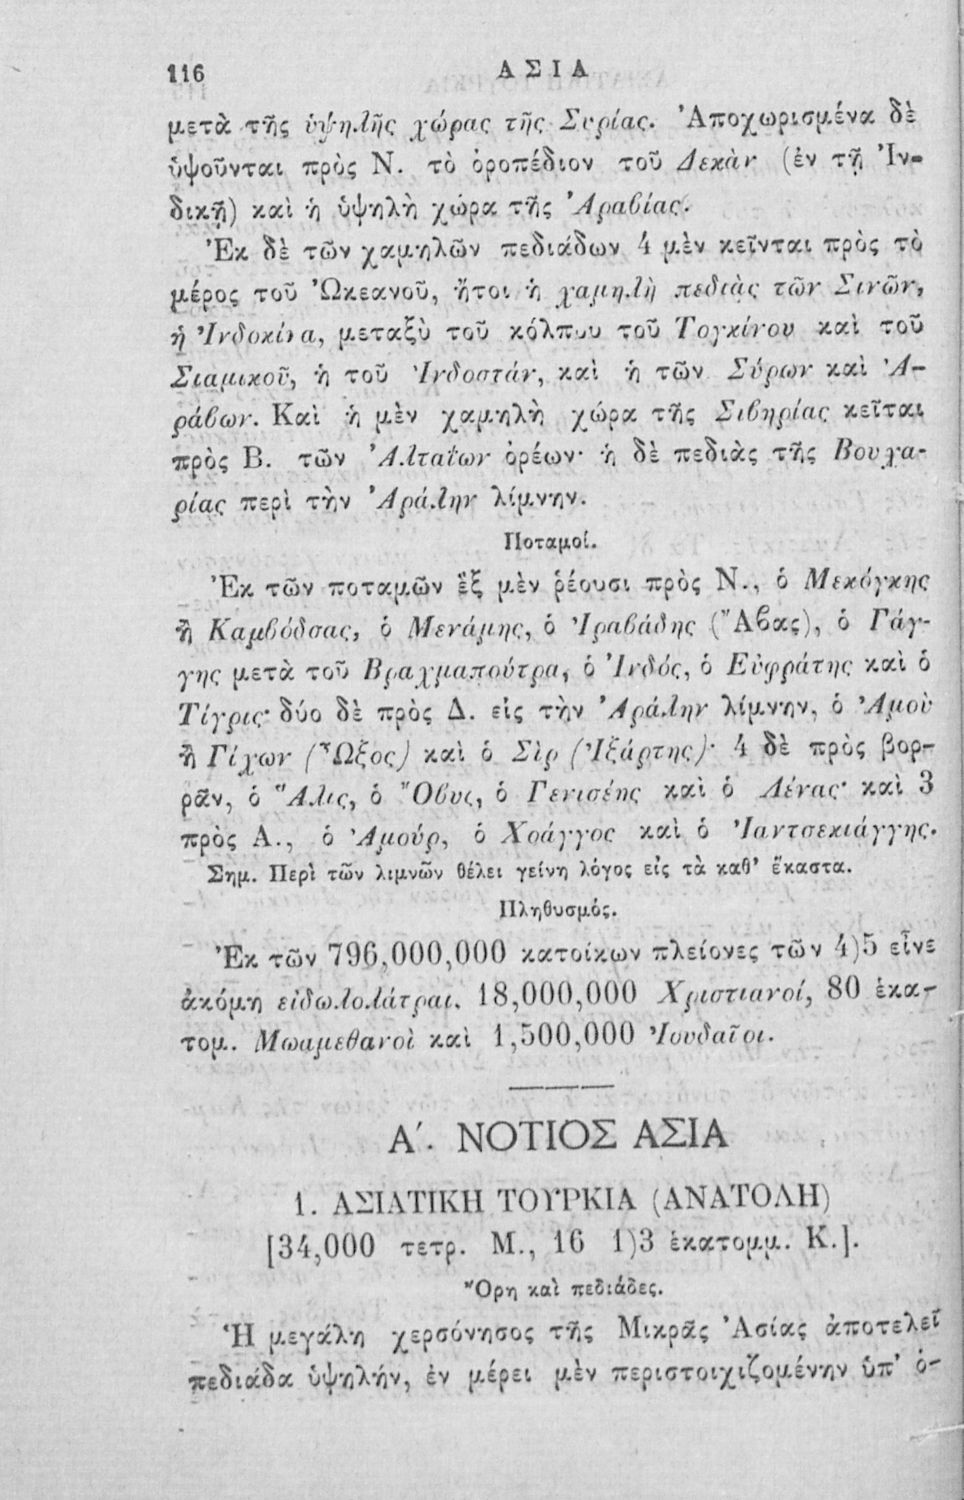 116 ΑΣΙΑ
μετὰ τῆς ὑψηλῆς χώρας τῆς Συρίας. Ἀποχωρισμένα δὲ
ὑψοῦνται πρὸς Ν. τὸ ὀροπέδιον τοῦ Δεκὰν (ἐν τῇ Ἰν-
δικῇ) καὶ ἡ ὑψηλὴ χώρα τῆς Ἀραβίας.
Ἐκ δὲ τῶν χαμηλῶν πεδιάδων 4 μὲν κεῖνται πρὸς τὸ
μέρος τοῦ Ὠκεανοῦ, ἤτοι ἡ χαμηλὴ πεδιὰς τῶν Σινῶν,
ἡ Ἰνδοκίνα, μεταξὺ τοῦ κόλπου τοῦ Τογκίνου καὶ τοῦ
Σιαμικοῦ, ἡ τοῦ Ἰνδοστάν, καὶ ἡ τῶν Σύρων καὶ Ἀ-
ράβων. Καὶ ἡ μὲν χαμηλὴ χώρα τῆς Σιβηρίας κεῖται
πρὸς Β. τῶν Ἀλταΐων ὀρέων· ἡ δὲ πεδιὰς τῆς Βουχα-
ρίας περὶ τὴν Ἀράλην λίμνην.
Ποταμοί.
Ἐκ τῶν ποταμῶν ἓξ μὲν ῥέουσι πρὸς Ν., ὁ Μεκόγκης
ἢ Καμβόδσας, ὁ Μενάμης, ὁ Ἰραβάδης (Ἄβας), ὁ Γάγ-
γης μετὰ τοῦ Βραχμαπούτρα, ὁ Ἰνδός, ὁ Εὐφράτης καὶ ὁ
Τίγρις· δύο δὲ πρὸς Δ. εἰς τὴν Ἀράλην λίμνην, ὁ Ἀμοὺ
ἢ Γίχων (Ὦξος) καὶ ὁ Σὶρ (Ἰξάρτης)· 4 δὲ πρὸς βορ-
ρᾶν, ὁ Ἄλις, ὁ Ὄβυς, ὁ Γενισέης καὶ ὁ Λένας· καὶ 3
πρὸς Α., ὁ Ἀμούρ, ὁ Χοάγγος καὶ ὁ Ἰαντσεκιάγγης.
Σημ. Περὶ τῶν λιμνῶν θέλει γείνη λόγος εἰς τὰ καθ' ἕκαστα.
Πληθυσμός.
Ἐκ τῶν 796,000,000 κατοίκων πλείονες τῶν 4)5 εἶνε
ἀκόμη εἰδωλολάτραι. 18,000,000 Χριστιανοί, 80 ἑκα-
τομ. Μωαμεθανοὶ καὶ 1,500,000 Ἰουδαῖοι.
Α΄. ΝΟΤΙΟΣ ΑΣΙΑ
1. ΑΣΙΑΤΙΚΗ ΤΟΥΡΚΙΑ (ΑΝΑΤΟΛΗ)
[34,000 τετρ. Μ., 16 1)3 ἑκατομμ. Κ.].
Ὄρη καὶ πεδιάδες.
Ἡ μεγάλη χερσόνησος τῆς Μικρᾶς Ἀσίας ἀποτελεῖ
πεδιάδα ὑψηλήν, ἐν μέρει μὲν περιστοιχιζομένην ὑπ' ὀ-